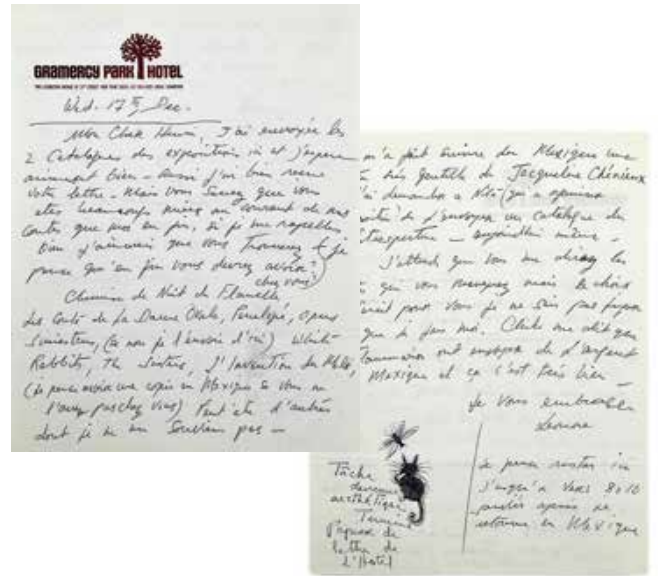 GRAMERCY PARK HOTEL
Wed. 17 Dec.
Mon Cher Henri, J'ai envoyée les
2 Catalogues des expositions ici et j'espère
arriveront bien – aussi j'ai bien reçue
votre lettre – Mais vous savez que vous
êtes beaucoup mieux au courant de mes
Contes que moi
j'aimerai que vous trouviez & je
pense qu'en fin vous devez avoir?
chez vous
Chemise de Nuit de Flanelle
les Conte de La Dame Ovale, Penelope, Opus
Siniestrus, (ça non je l'envoie d'ici) White
Rabbits, The Sisters, L'Invention du Mole,
(je peux avoir une copie en Mexique si vous ne
l'avez pas chez vous) Peut etre d'autres
dont je ne me souviens pas –
m'a fait suivre du Mexique une
très gentille de Jacqueline Chénieux
demander a
d'envoyer un catalogue du
retrospective – aujourdhui même –
J'attend que vous me direz les
qui vous manquez mais le choix
pour vous je ne sais pas
que
ont envoyer de l'argent
Mexique et ça c'est très bien –
Je vous embrasse
Leonora
Tâche
devenue
aesthétique
Termine
Papier de
lettre de
L'Hotel
Je peux rester ici
j'usqu'a vers 8 o 10
après je
retourne en Mexique